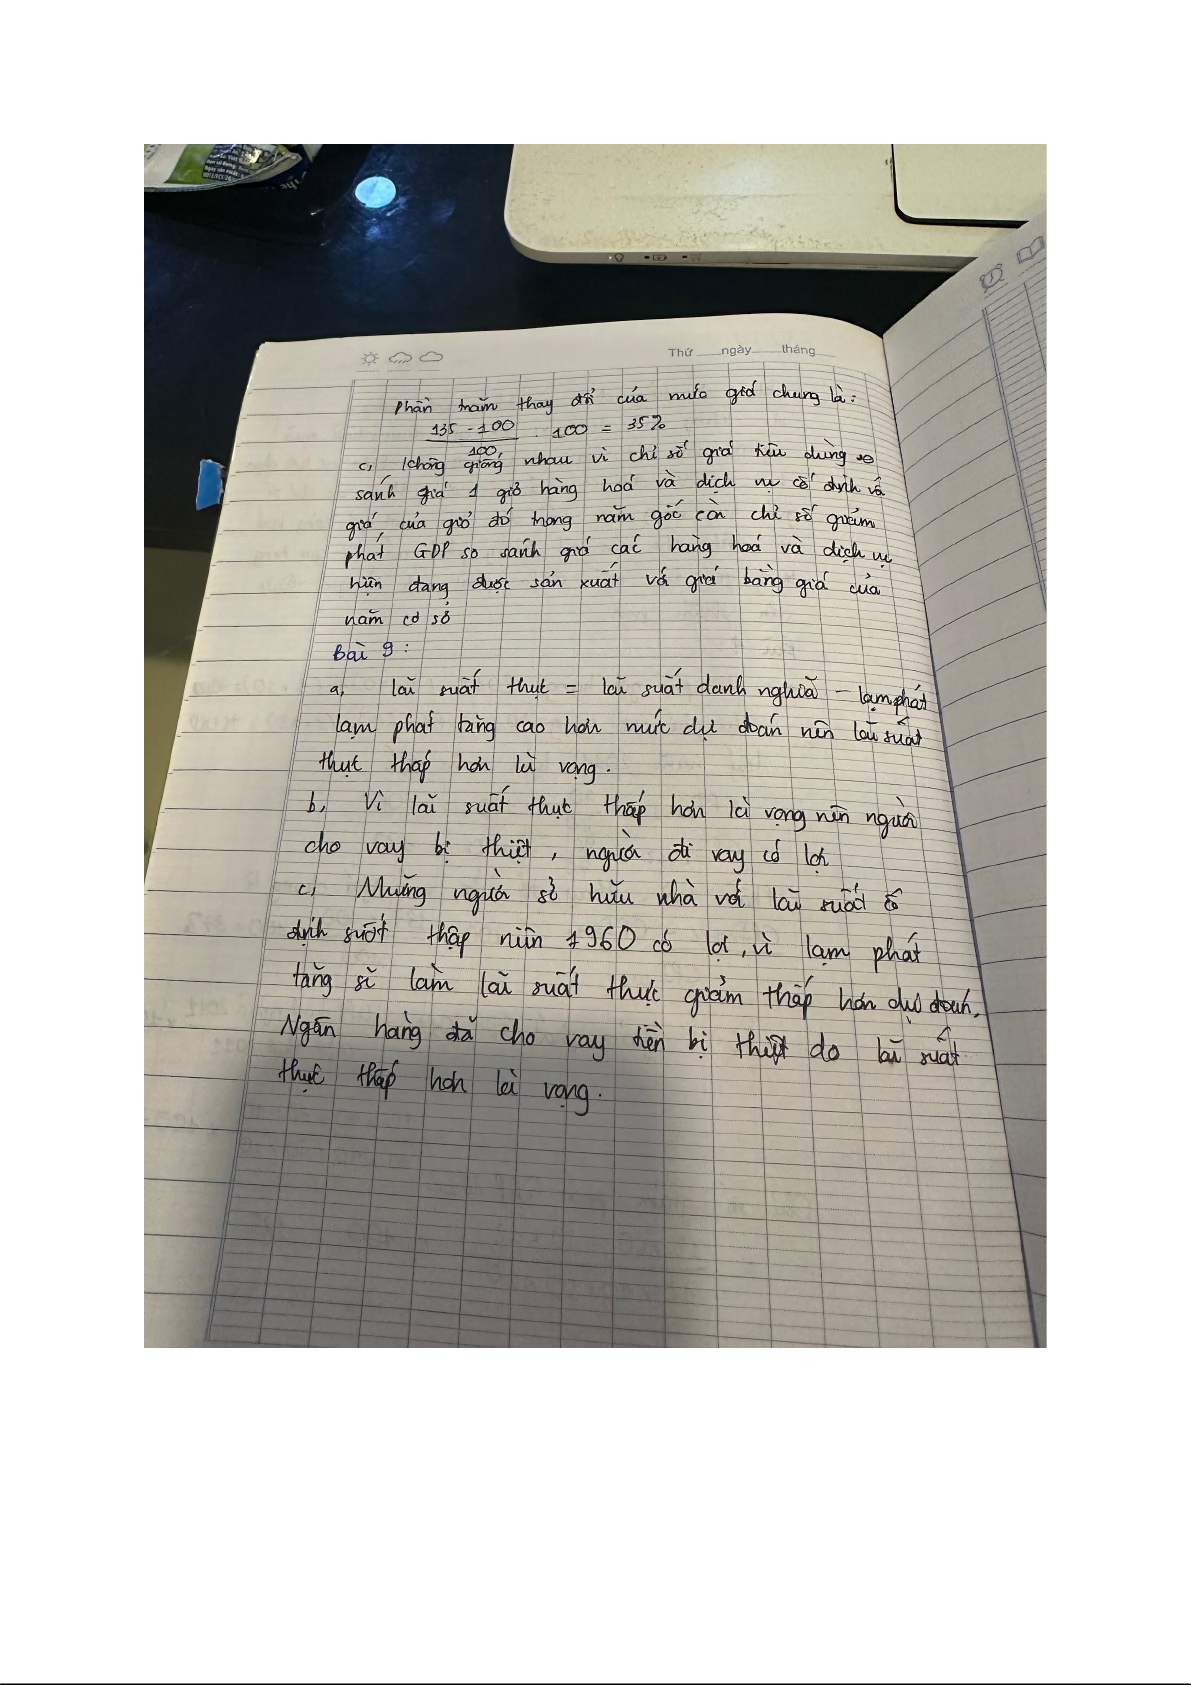 Thứ ngày tháng
Phần trăm thay đổi của mức giá chung là:
135 - 100
100 . 100 = 35%
c, Không giống nhau vì chỉ số giá tiêu dùng so
sánh giá 1 giỏ hàng hoá và dịch vụ cố định với
giá của giỏ đó trong năm gốc còn chỉ số giảm
phát GDP so sánh giá các hàng hoá và dịch vụ
hiện đang được sản xuất với giá bằng giá của
năm cơ sở
Bài 9:
a, lãi suất thực = lãi suất danh nghĩa - lạm phát
lạm phát tăng cao hơn mức dự đoán nên lãi suất
thực thấp hơn kì vọng.
b, Vì lãi suất thực thấp hơn kì vọng nên người
cho vay bị thiệt, người đi vay có lợi
c, Những người sở hữu nhà với lãi suất cố
định suốt thập niên 1960 có lợi, vì lạm phát
tăng sẽ làm lãi suất thực giảm thấp hơn dự đoán.
Ngân hàng đã cho vay tiền bị thiệt do lãi suất
thực thấp hơn kì vọng.